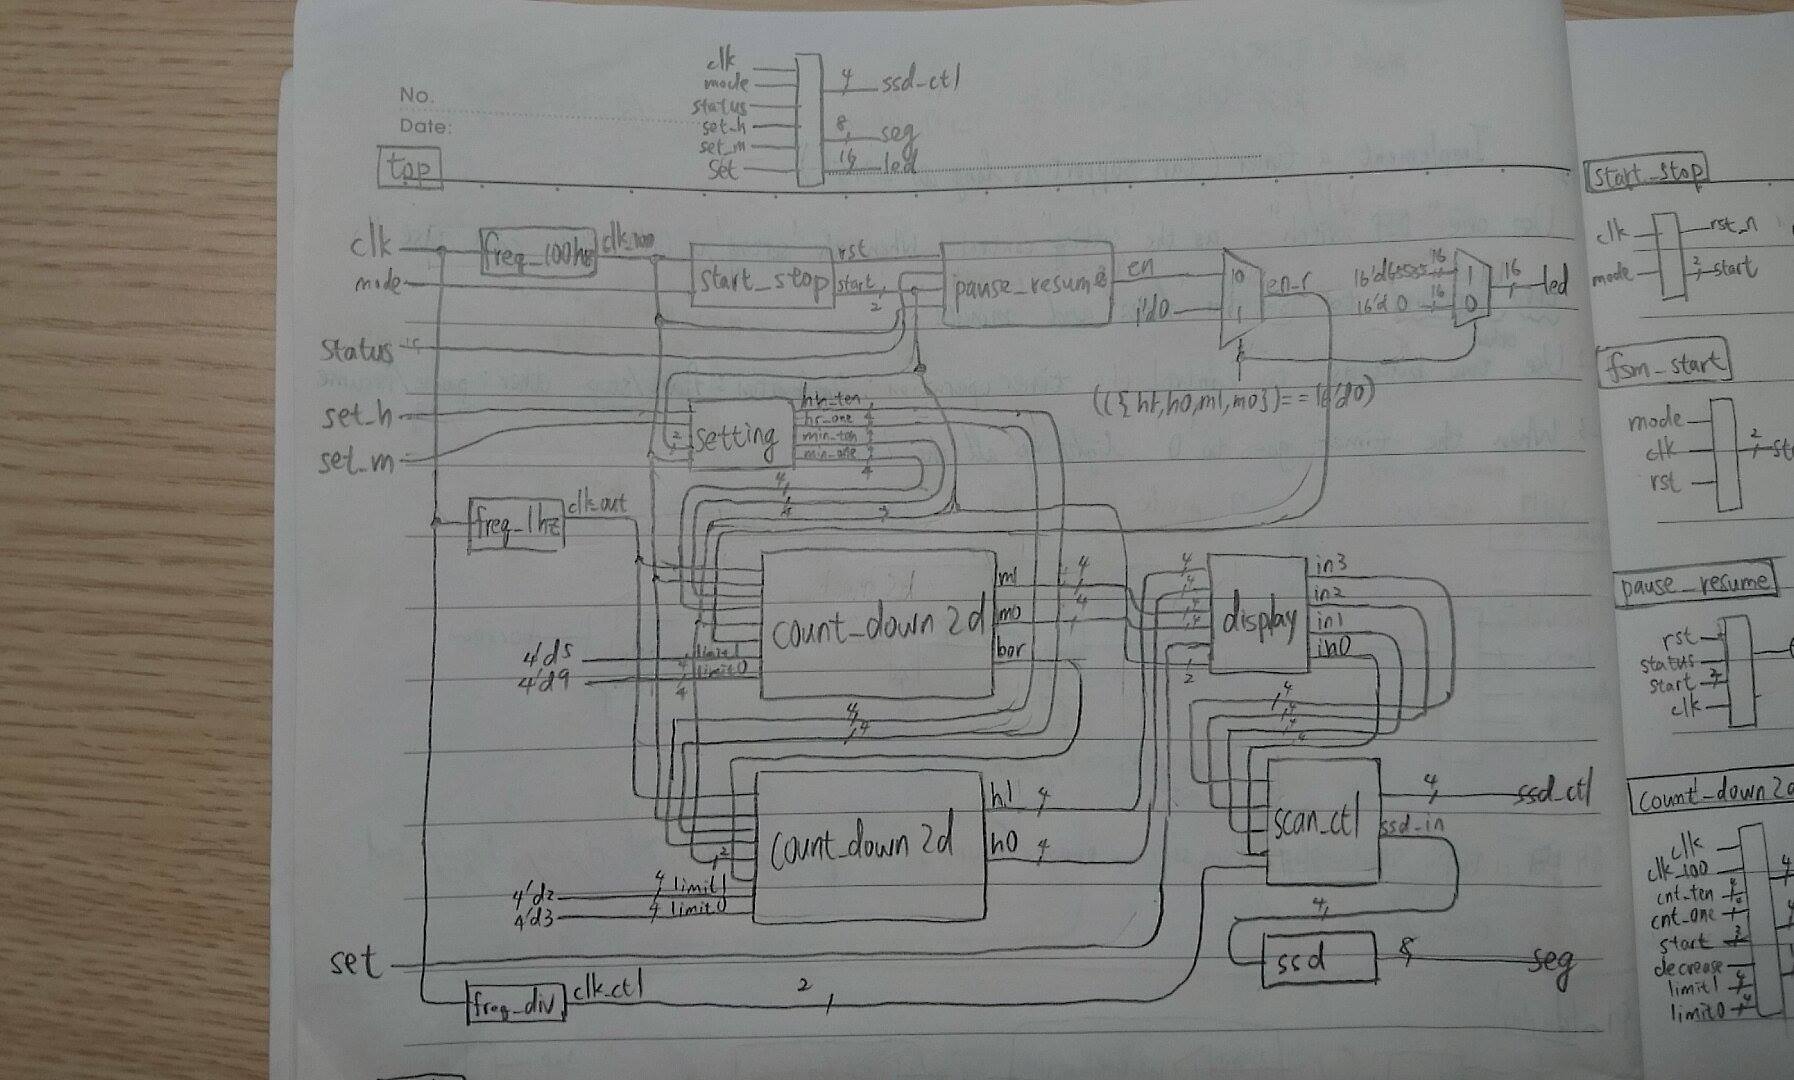 No.
Date:
top
clk
mode
status
set_h
set_m
set
4 ssd_ctl
8 seg
16 led
clk
freq_100hz
clk_100
mode
start_stop
rst
start
2
pause_resume
en
1'd0
0
1
en_r
16'd65535 16
16'd0 16
1
0
16
led
status
set_h
set_m
2
setting
hr_ten
hr_one 4
min_ten
min_one
4
4
4
2
freq_1hz
clk_out
count_down 2d
m1 4
m0 4
bor
4'd5
4'd9
limit1
4 limit0
4
4
4
display
in3
in2
in1
in0
4
4
4
4
2
4
4
4
4
count_down 2d
h1 4
h0 4
2
4'd2 4 limit1
4'd3 4 limit0
scan_ctl
4
ssd_ctl
ssd_in
4
ssd
8
seg
set
freq_div
clk_ctl
2
start_stop
clk
mode
rst_n
2 start
fsm_start
mode
clk
rst
2
pause_resume
rst
status
start 2
clk
count_down 2d
clk
clk_100
cnt_ten 4
cnt_one
start
decrease
limit1 4
limit0 4